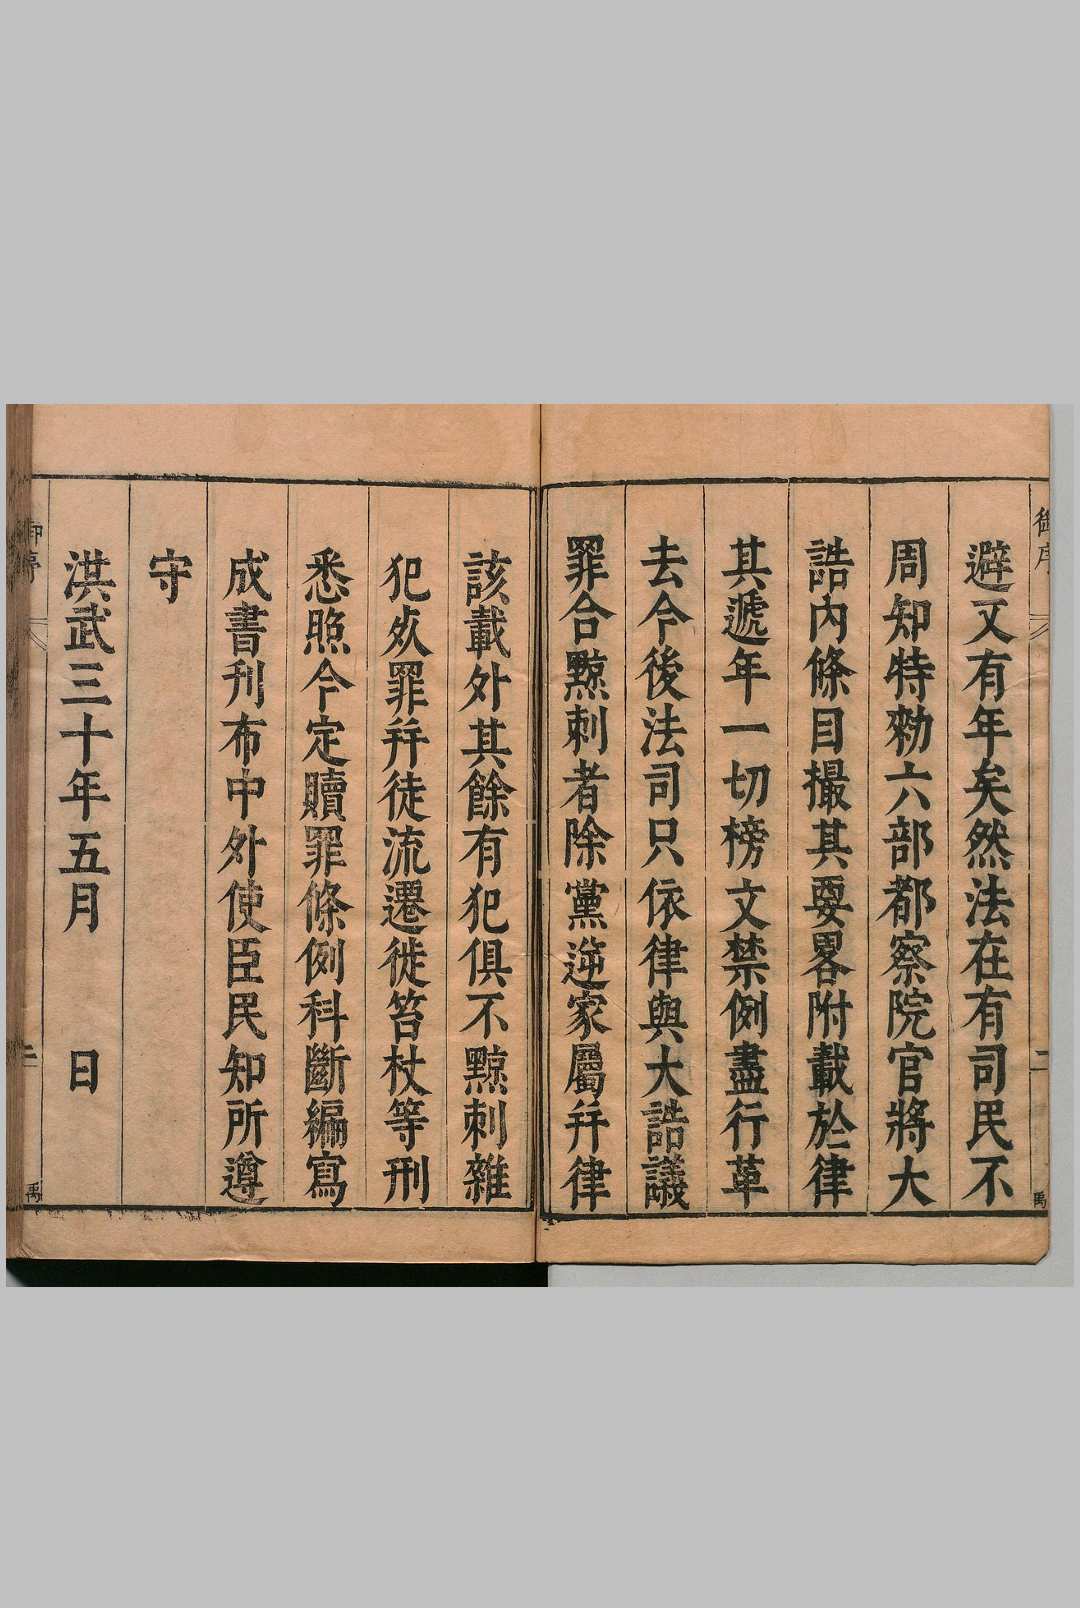 避又有年矣然法在有司民不
周知特勑六部都察院官將大
誥内條目撮其要畧附載於律
其遞年一切榜文禁例盡行革
去今後法司只依律與大誥議
罪合黥刺者除黨逆家屬并律
該載外其餘有犯俱不黥刺雜
犯死罪并徒流遷徙笞杖等刑
悉照今定贖罪條例科斷編寫
成書刊布中外使臣民知所遵
守
洪武三十年五月 日
御序
二
禹